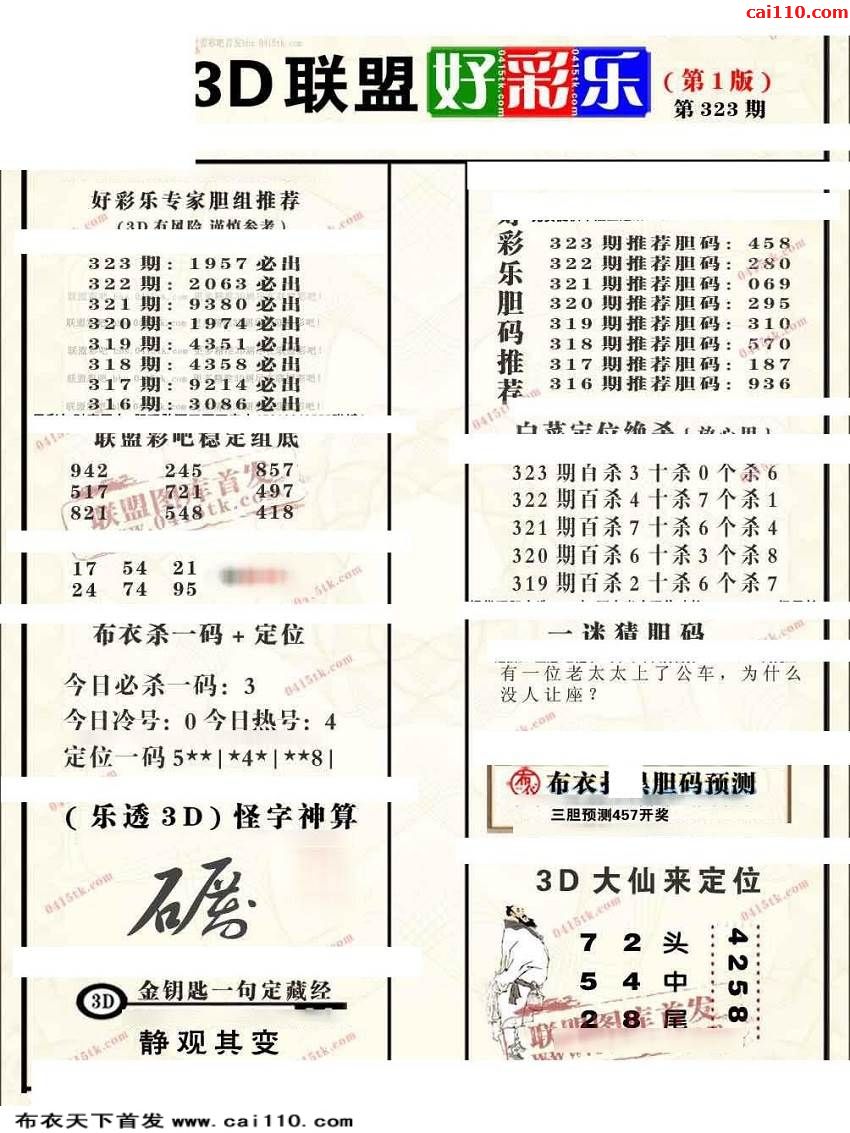 cai110.com
3D联盟好彩乐
(第1版)
第323期
好彩乐专家胆组推荐
(3D有风险 谨慎参考)
323期: 1957必出
322期: 2063必出
321期: 9380必出
320期: 1974必出
319期: 4351必出
318期: 4358必出
317期: 9214必出
316期: 3086必出
联盟彩吧稳定组底
942 245 857
517 721 497
821 548 418
17 54 21
24 74 95
布衣杀一码+定位
今日必杀一码: 3
今日冷号: 0 今日热号: 4
定位一码 5**|*4*|**8|
(乐透3D)怪字神算
3D 金钥匙一句定藏经
静观其变
好彩乐胆码推荐
323期推荐胆码: 458
322期推荐胆码: 280
321期推荐胆码: 069
320期推荐胆码: 295
319期推荐胆码: 310
318期推荐胆码: 570
317期推荐胆码: 187
316期推荐胆码: 936
白菜定位绝杀(放心用)
323期百杀3十杀0个杀6
322期百杀4十杀7个杀1
321期百杀7十杀6个杀4
320期百杀6十杀3个杀8
319期百杀2十杀6个杀7
一谜猜胆码
有一位老太太上了公车，为什么
没人让座？
布衣 胆码预测
三胆预测457开奖
3D大仙来定位
7 2 头
5 4 中
2 8 尾
4258
联盟图库首发
www.0415tk.com
0415tk.com
布衣天下首发 www.cai110.com